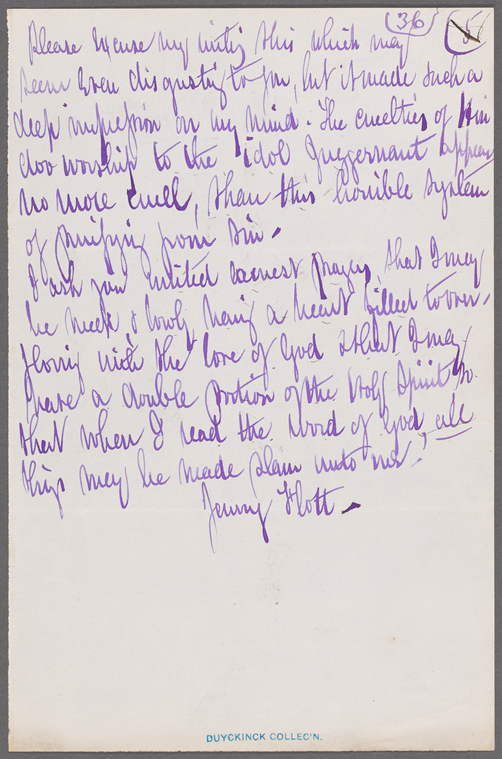 (36)
Please excuse my writing this which may
seem even disgusting to you, but it made such a
deep impression on my mind. The cruelties of Hin
doo worship to the idol Juggernaut appear
no more cruel, than this horrible system
of purifying from sin.
I ask your united earnest prayers, that I may
be meek & lowly, having a heart filled to over-
flowing with the love of God & that I may
have a double portion of the Holy Spirit so
that when I read the word of God all
things may be made plain unto me.
Jenny Flott.
DUYCKINCK COLLEC'N.